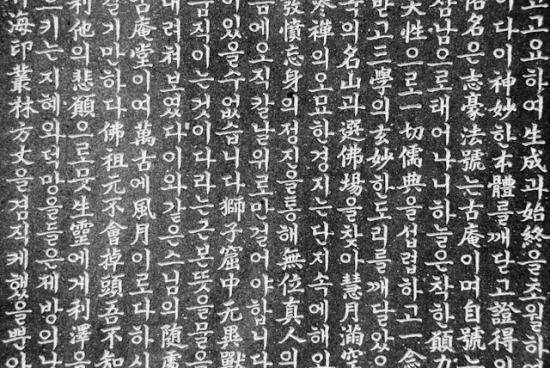 고요하여生成과始終을초월하여
이다이神妙한本體를깨달고證得
俗名은志豪法號는古庵이며自號는
삼남으로태어나니하늘은착한願力
天性으로一切儒典을섭렵하고一念
받고三學의玄妙한도리를깨달았으
의名山과選佛場을찾아慧月滿空
禪의오묘한경지는단지속에해인
發憤忘身의정진을통해無位真人의
금에오직칼날위로만걸어야합니다
이있을수없습니다獅子窟中无異獸
움직이는것이다라는근본뜻을물을
내려쳐보였다이와같은스님의随處
古庵堂이여萬古에風月이로다하시
길기만하다佛祖元不會掉頭吾不知
利他의悲願으로뭇生靈에게利澤을
키는지혜와덕망을들은제방의
海印叢林方丈을겸직케했을뿐아